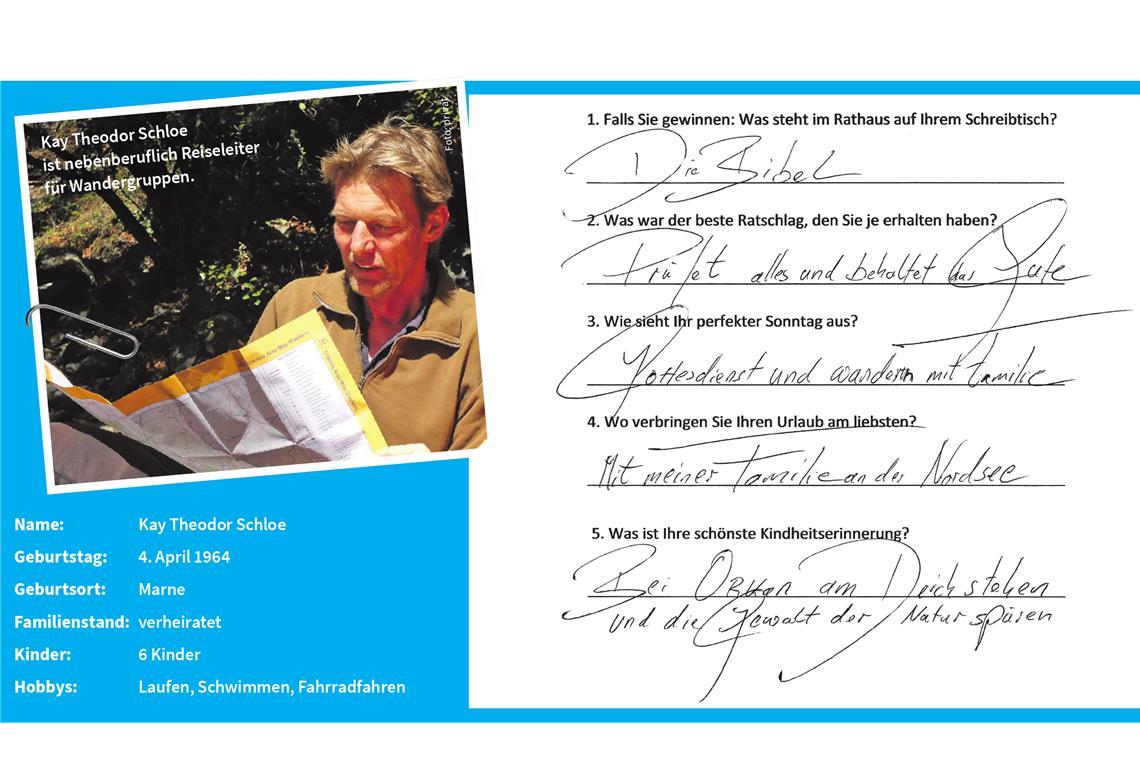 Kay Theodor Schloe
ist nebenberuflich Reiseleiter
für Wandergruppen.
Foto: privat
Name: Kay Theodor Schloe
Geburtstag: 4. April 1964
Geburtsort: Marne
Familienstand: verheiratet
Kinder: 6 Kinder
Hobbys: Laufen, Schwimmen, Fahrradfahren
1. Falls Sie gewinnen: Was steht im Rathaus auf Ihrem Schreibtisch?
Die Bibel
2. Was war der beste Ratschlag, den Sie je erhalten haben?
Prüfet alles und behaltet das Gute
3. Wie sieht Ihr perfekter Sonntag aus?
Gottesdienst und wandern mit Familie
4. Wo verbringen Sie Ihren Urlaub am liebsten?
Mit meiner Familie an der Nordsee
5. Was ist Ihre schönste Kindheitserinnerung?
Bei Orkan am Deich stehen
und die Gewalt der Natur spüren